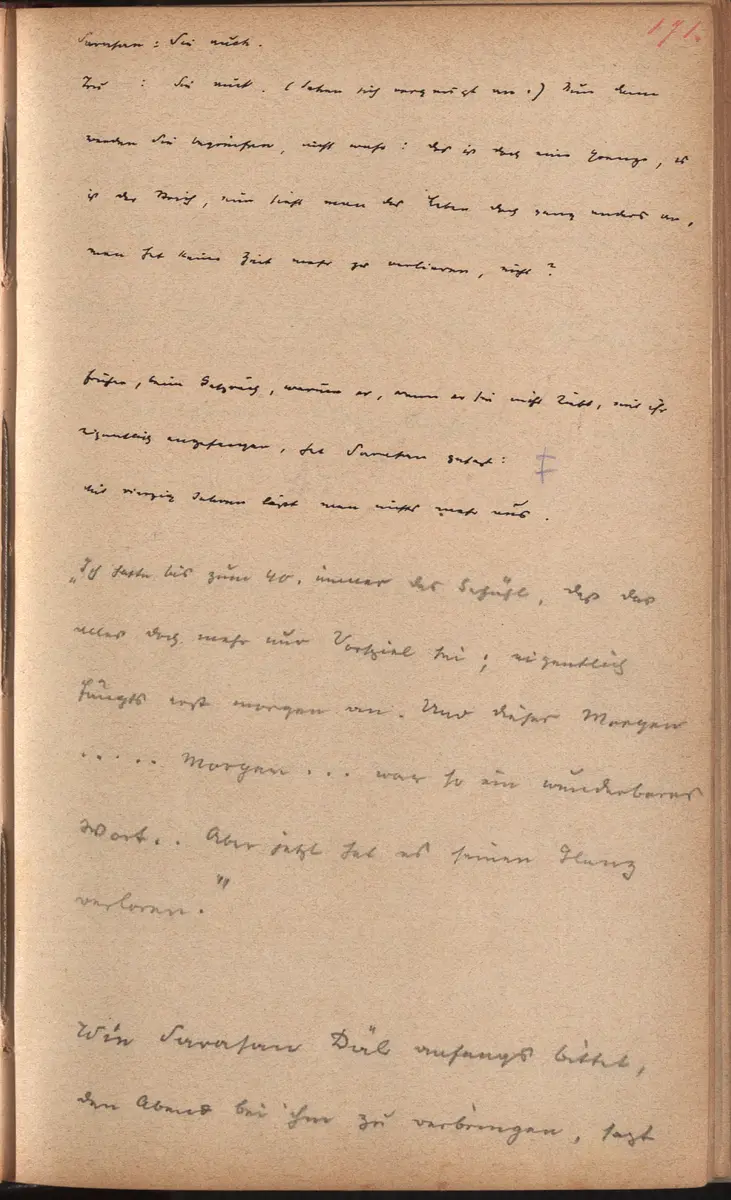 171.
Sarasan: Sie auch.
Sie auch. (Sehen sich vergnügt an.) Nun dann
werden Sie begreifen, nicht wahr: das ist doch eine Grenze, es
ist der Strich, nun sieht man das Leben doch ganz anders an,
man hat keine Zeit mehr zu verlieren, nicht?
früher, beim Gespräch, warum er, wenn er sie nicht liebt, mit ihr
eigentlich angefangen, hat Sarasan gesagt: ‡
Mit vierzig Jahren läßt man nichts mehr aus.
„Ich hatte bis zum 40. immer das Gefühl, daß das
alles doch mehr nur Vorspiel sei; eigentlich
fängts erst morgen an. Und dieses Morgen
..... Morgen ... war so ein wunderbares
Wort.. Aber jetzt hat es seinen Glanz
verloren."
Wie Sarasan Däl anfangs bittet,
den Abend bei ihm zu verbringen, sagt